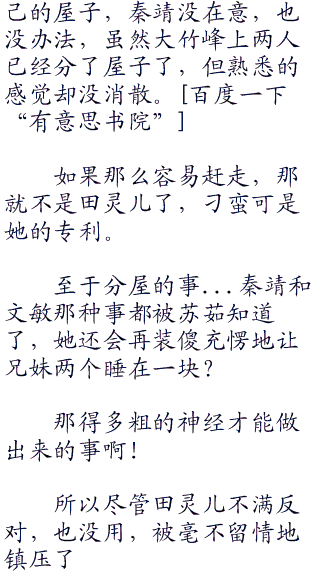 己的屋子，秦靖没在意，也
没办法，虽然大竹峰上两人
已经分了屋子了，但熟悉的
感觉却没消散。[百度一下
“有意思书院”]
如果那么容易赶走，那
就不是田灵儿了，刁蛮可是
她的专利。
至于分屋的事...秦靖和
文敏那种事都被苏茹知道
了，她还会再装傻充愣地让
兄妹两个睡在一块？
那得多粗的神经才能做
出来的事啊！
所以尽管田灵儿不满反
对，也没用，被毫不留情地
镇压了